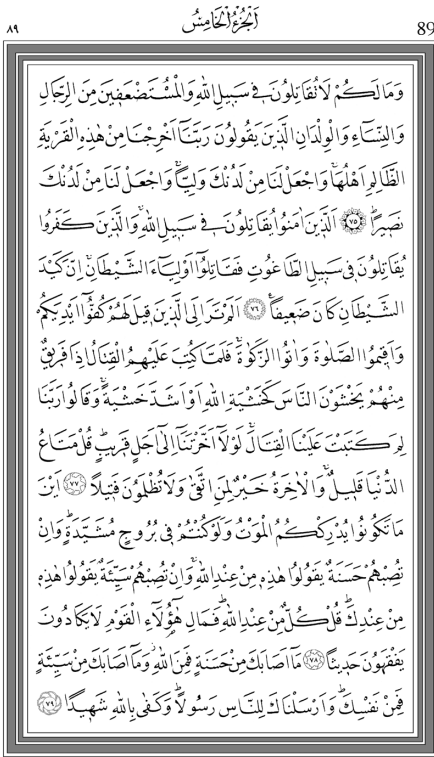 ٨٩ اَلْجُزْءُ الْخَامِسُ 89
وَمَا لَكُمْ لَا تُقَاتِلُونَ فِي سَبِيلِ اللّٰهِ وَالْمُسْتَضْعَفِينَ مِنَ الرِّجَالِ
وَالنِّسَاءِ وَالْوِلْدَانِ الَّذِينَ يَقُولُونَ رَبَّنَا اَخْرِجْنَا مِنْ هٰذِهِ الْقَرْيَةِ
الظَّالِمِ اَهْلُهَا وَاجْعَلْ لَنَا مِنْ لَدُنْكَ وَلِيًّا وَاجْعَلْ لَنَا مِنْ لَدُنْكَ
نَصِيرًا ﴿٧٥﴾ اَلَّذِينَ اٰمَنُوا يُقَاتِلُونَ فِي سَبِيلِ اللّٰهِ وَالَّذِينَ كَفَرُوا
يُقَاتِلُونَ فِي سَبِيلِ الطَّاغُوتِ فَقَاتِلُوا اَوْلِيَاءَ الشَّيْطَانِ اِنَّ كَيْدَ
الشَّيْطَانِ كَانَ ضَعِيفًا ﴿٧٦﴾ اَلَمْ تَرَ اِلَى الَّذِينَ قِيلَ لَهُمْ كُفُّوا اَيْدِيَكُمْ
وَاَقِيمُوا الصَّلٰوةَ وَاٰتُوا الزَّكٰوةَ فَلَمَّا كُتِبَ عَلَيْهِمُ الْقِتَالُ اِذَا فَرِيقٌ
مِنْهُمْ يَخْشَوْنَ النَّاسَ كَخَشْيَةِ اللّٰهِ اَوْ اَشَدَّ خَشْيَةً وَقَالُوا رَبَّنَا
لِمَ كَتَبْتَ عَلَيْنَا الْقِتَالَ لَوْلَا اَخَّرْتَنَا اِلٰى اَجَلٍ قَرِيبٍ قُلْ مَتَاعُ
الدُّنْيَا قَلِيلٌ وَالْاٰخِرَةُ خَيْرٌ لِمَنِ اتَّقٰى وَلَا تُظْلَمُونَ فَتِيلًا ﴿٧٧﴾ اَيْنَ
مَا تَكُونُوا يُدْرِكْكُمُ الْمَوْتُ وَلَوْ كُنْتُمْ فِي بُرُوجٍ مُشَيَّدَةٍ وَاِنْ
تُصِبْهُمْ حَسَنَةٌ يَقُولُوا هٰذِهِ مِنْ عِنْدِ اللّٰهِ وَاِنْ تُصِبْهُمْ سَيِّئَةٌ يَقُولُوا هٰذِهِ
مِنْ عِنْدِكَ قُلْ كُلٌّ مِنْ عِنْدِ اللّٰهِ فَمَالِ هٰؤُلَاءِ الْقَوْمِ لَا يَكَادُونَ
يَفْقَهُونَ حَدِيثًا ﴿٧٨﴾ مَا اَصَابَكَ مِنْ حَسَنَةٍ فَمِنَ اللّٰهِ وَمَا اَصَابَكَ مِنْ سَيِّئَةٍ
فَمِنْ نَفْسِكَ وَاَرْسَلْنَاكَ لِلنَّاسِ رَسُولًا وَكَفٰى بِاللّٰهِ شَهِيدًا ﴿٧٩﴾